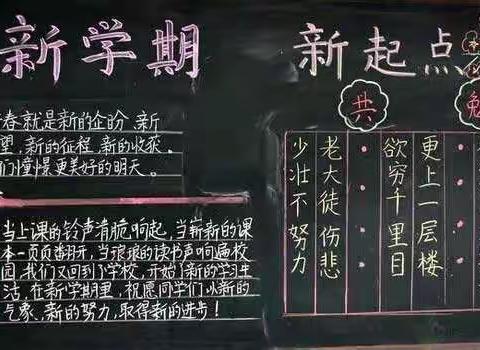 新学期
新起点
春就是新的企盼、新
望、新的征程、新的收获。
们憧憬更美好的明天。
当上课的铃声清脆响起，当崭新的课
本一页页翻开，当琅琅的读书声响遍校
园，我们又回到了学校，开始了新的学习生
活，在新学期里，祝愿同学们以新的
气象、新的努力，取得新的进步！
共
勉
少壮不努力
老大徒伤悲
欲穷千里目
更上一层楼